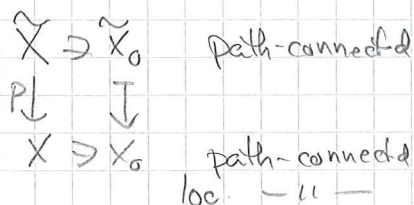 X̃ ∋ x̃₀ path-connected
p↓ ↧
X ∋ x₀ path-connected
loc. —〃—